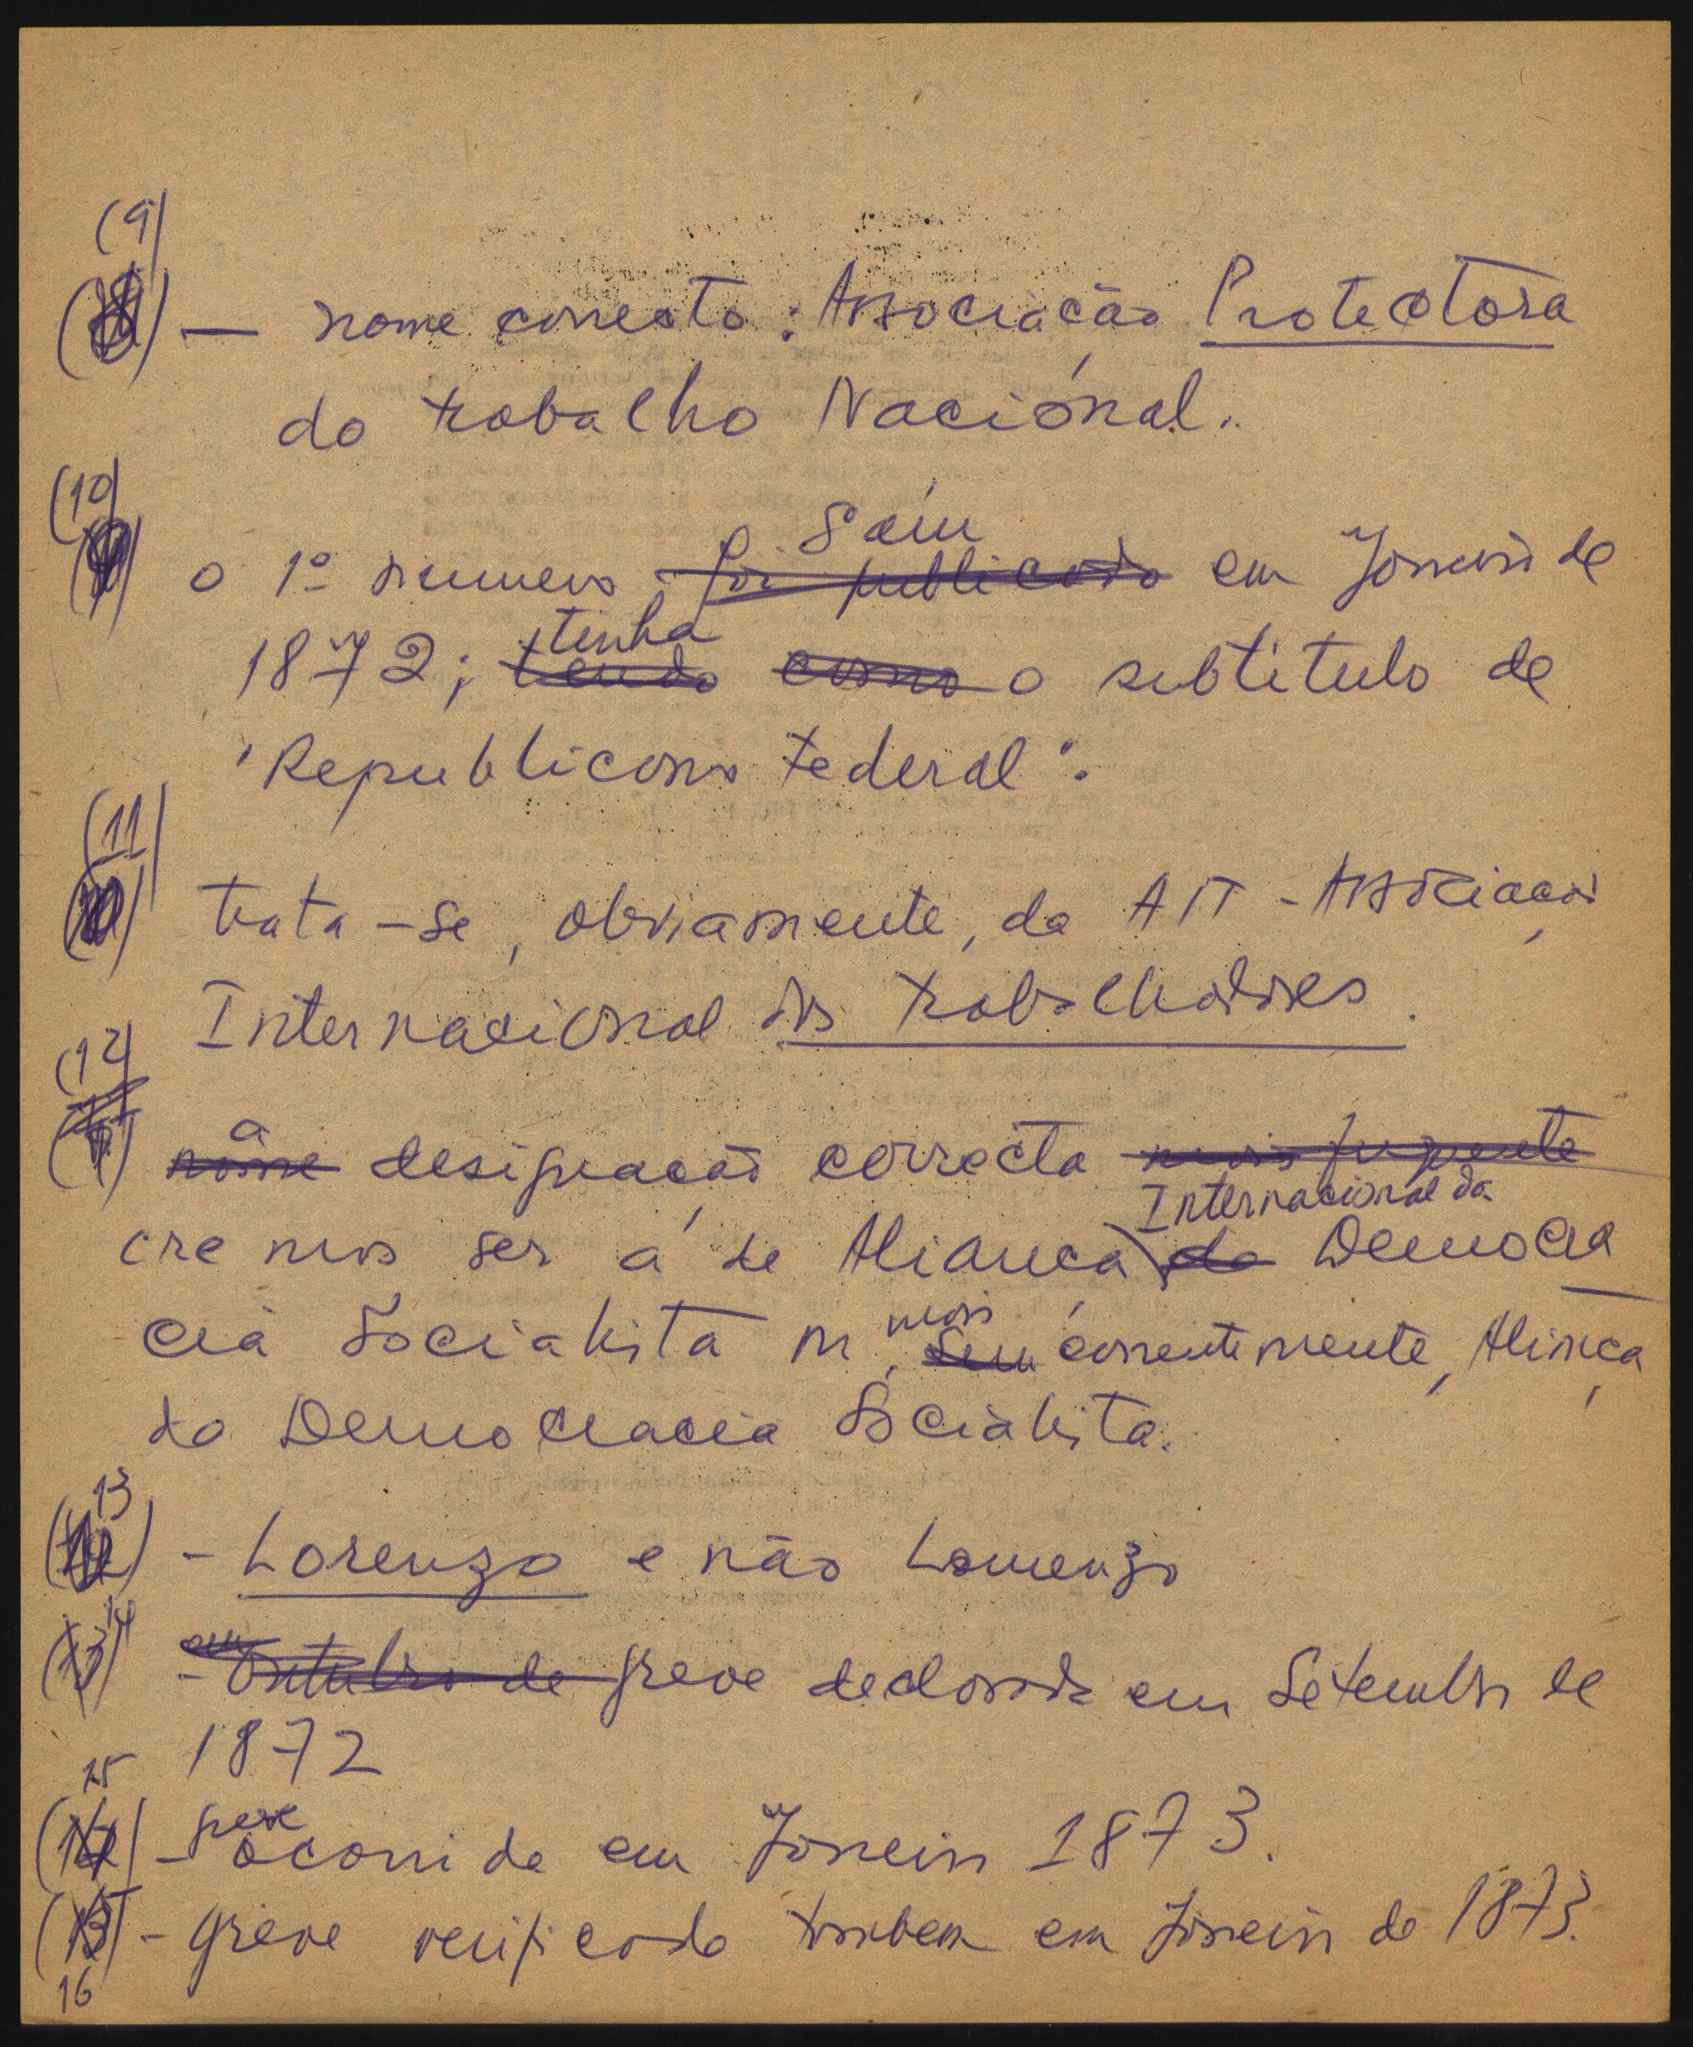 (9)
(8) — nome correcto: Associação Protectora
do trabalho Nacional.
(10)
saíu
o 1º numero foi publicado em Janeiro de
tinha
1872; tendo como o subtitulo de
"Republicano Federal".
(11)
(10) trata-se, obviamente, da AIT - Associação
Internacional dos trabalhadores.
(12)
a
nome designação correcta mais frequente
Internacional da
cremos ser a de Aliança da Democra
mais
cia Socialista ou, correntemente, Aliança
da Democracia Socialista.
13
(12) - Lorenzo e não Lourenzo
14
em
(13) - Outubro de greve declarada em Setembro de
1872
15
greve
(14) - ocorrida em Janeiro 1873.
(15) - greve verificada tambem em Janeiro de 1873.
16